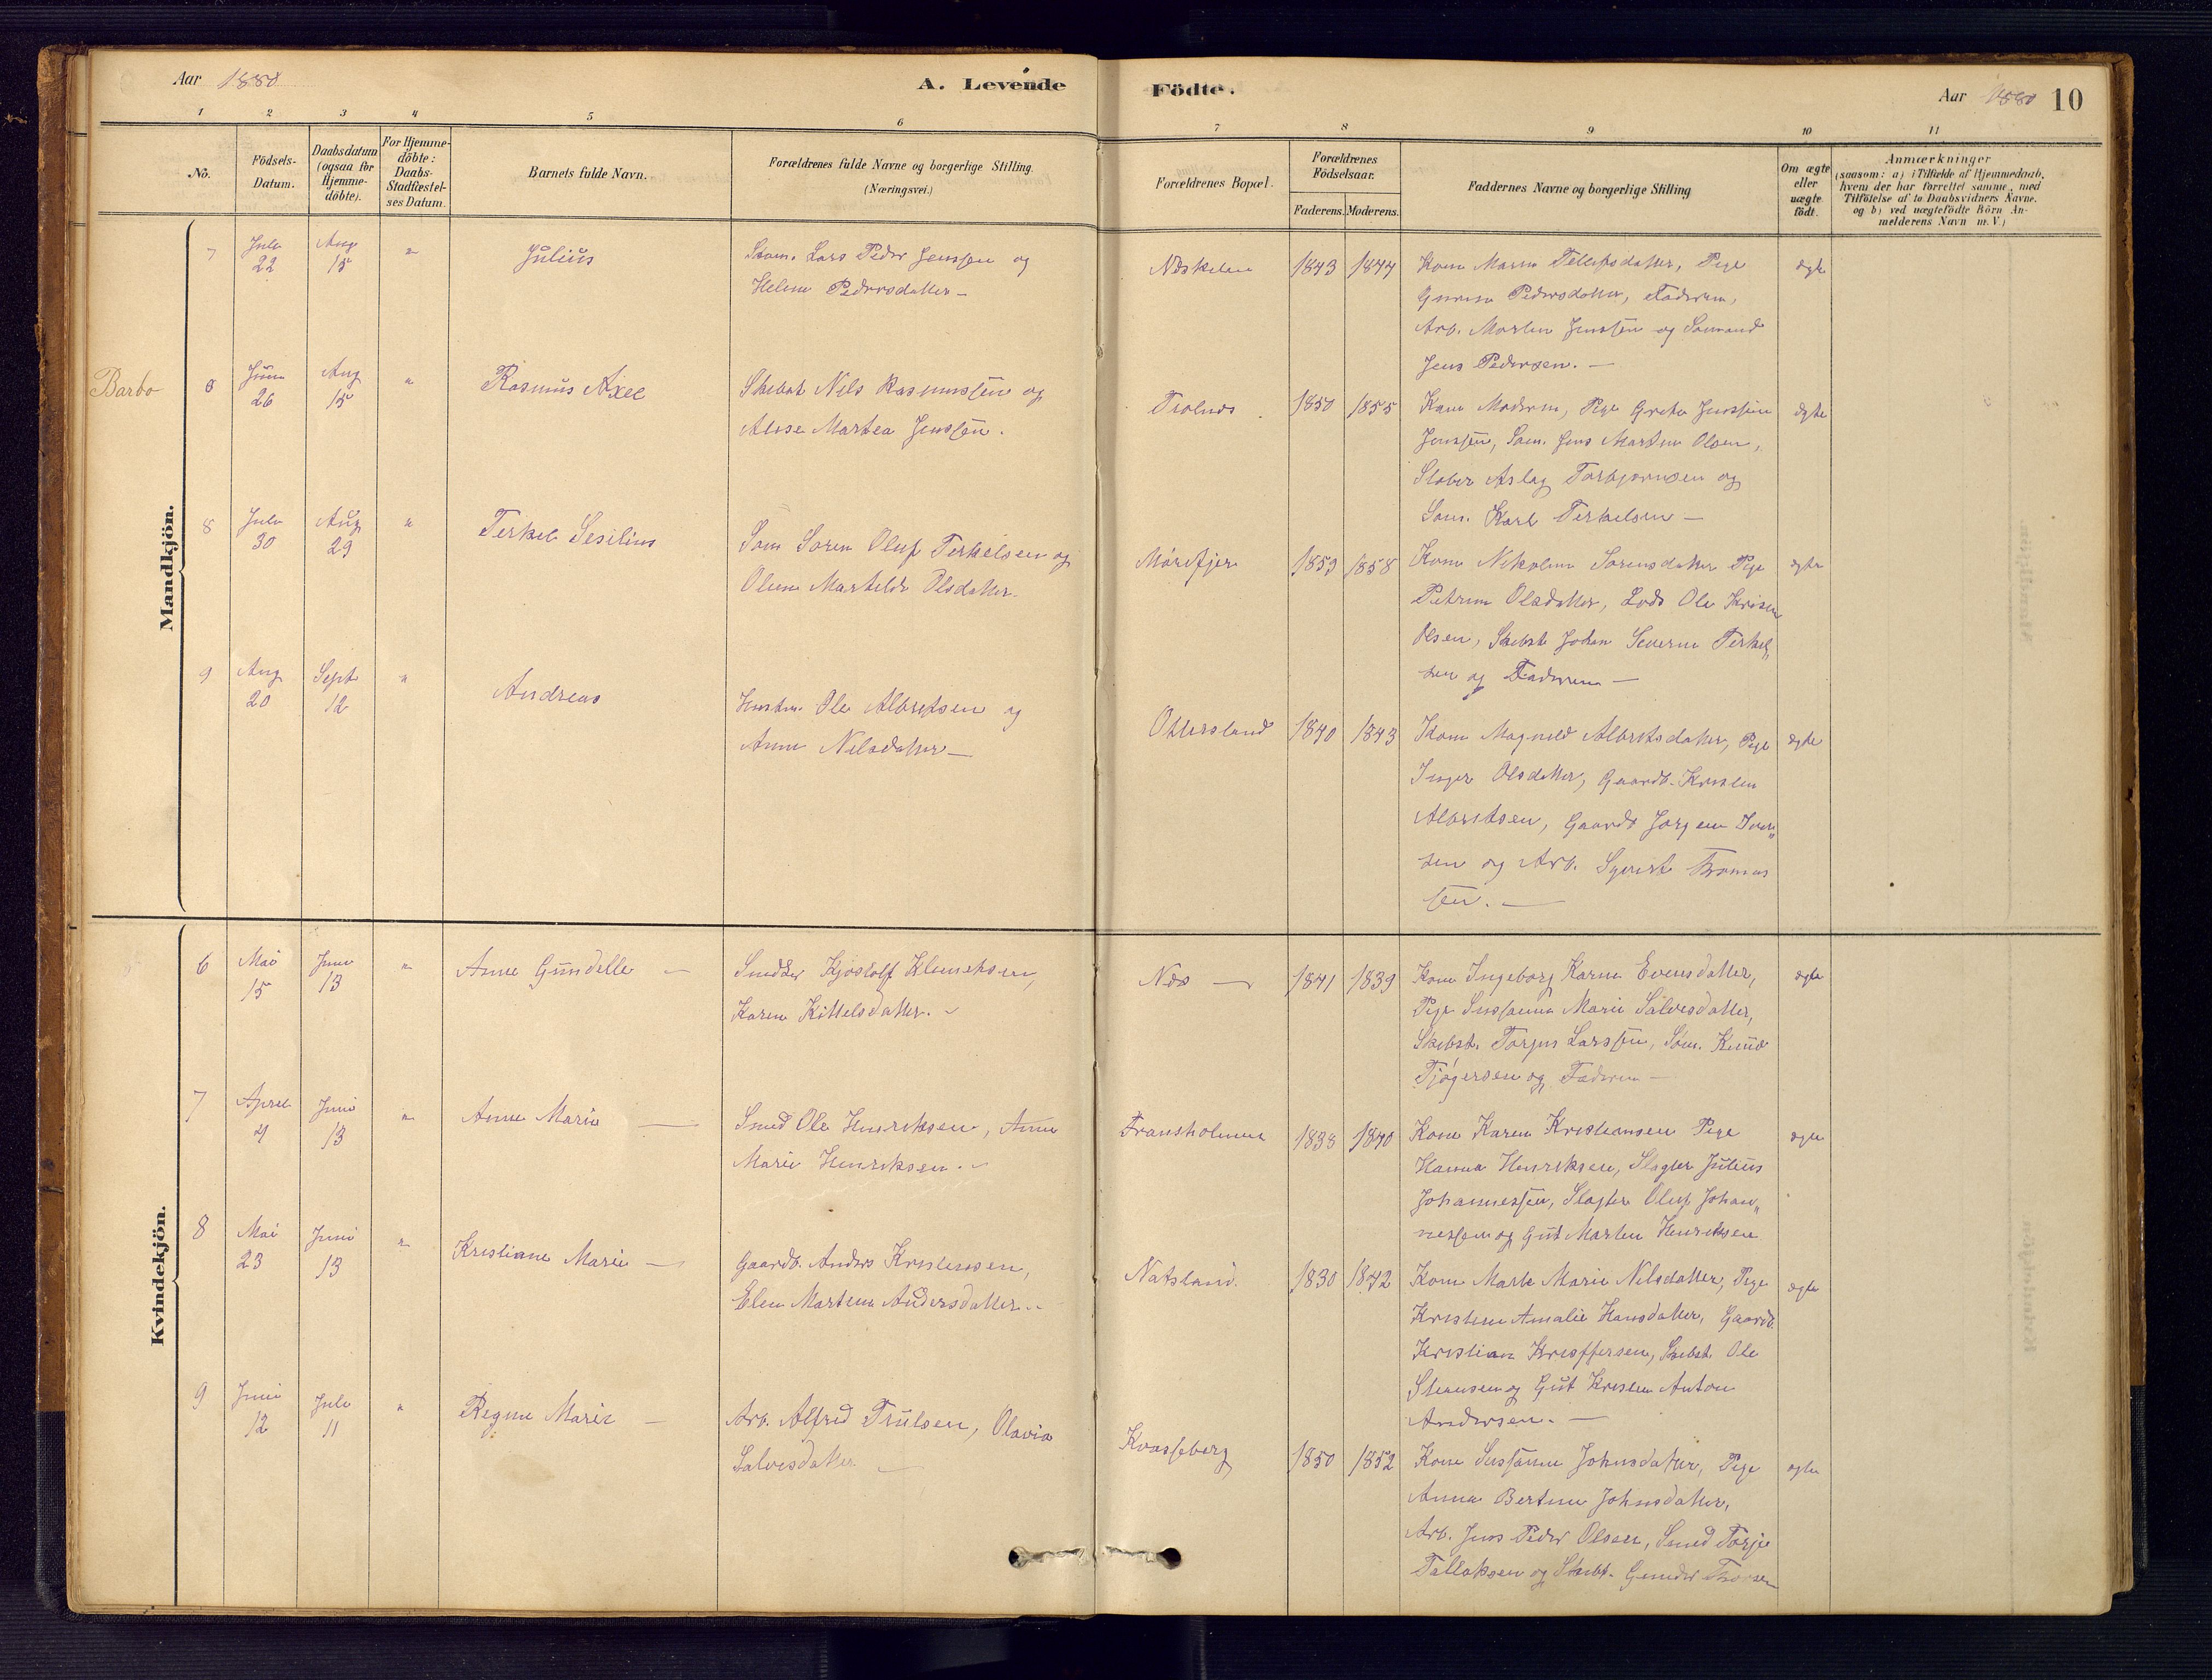 Aar 1880
A. Levende
Födte.
Aar 1880 10
1 2 3 4 5 6 7 8 9 10 11
No.
Födsels-
Datum.
Daabsdatum
(ogsaa for
Hjemme-
döbte).
For Hjemme-
döbte:
Daabs-
Stadfæstel-
ses Datum.
Barnets fulde Navn.
Forældrenes fulde Navne og borgerlige Stilling.
(Næringsvei.)
Forældrenes Bopæl.
Forældrenes
Födselsaar.
Faderens. Moderens.
Faddernes Navne og borgerlige Stilling
Om ægte
eller
uægte
födt.
Anmærkninger
(saasom: a) i Tilfælde af Hjemmedaab,
hvem der har forrettet samme, med
Tilföielse af to Daabsvidners Navne.
og b) ved uægtefödte Börn An-
melderens Navn m. V.)
Mandkjön.
7 Juli 22 Aug 15 " Julius
Søm. Lars Peder Jenssen og
Helene Pedersdatter —
Neskilen 1843 1844
Kone Maren Tellefsdatter, Pige
Gurine Pedersdatter, Faderen,
Arb. Morten Jenssen og Sømand
Jens Pedersen. —
ægte
Barbo 8 Juni 26 Aug 15 " Rasmus Axel
Skibst Nils Rasmussen og
Alise Martea Jenssen.
1850 1855
Kone Moderen, Pige Grete Jenssen
Jenssen, Søm. Jens Martin Olsen,
Støber Aslag Torbjørnsen og
Søm. Karl Terkelsen —
ægte
8 Juli 30 Aug 29 " Terkel Sesilius
Søm Søren Oluf Terkelsen og
Oline Martilde Olsdatter.
Mørefjer 1859 1858
Kone Nikoline Sørensdatter Pige
Petrine Olsdatter, Lods Ole
Olsen, Skibst Johan Severin Terkel„
sen og Faderen —
ægte
9 Aug 20 Sept 12 " Andreas
Ole Albretsen og
Anne Nilsdatter —
Ottersland 1840 1843
Kone Magnild Albretsdatter, Pige
Inger Olsdatter, Gaardb. Kristen
Albretsen, Gaardb Jørgen Iver„
sen og Arb. Syvert Thomas
sen. —
ægte
Kvindekjön.
6 Mai 15 Juni 13 " Anne Gundelle —
Kjøstolf Klemetsen,
Karen Kittelsdatter. —
Næs — 1841 1839
Kone Ingeborg Karine Evensdatter,
Pige Sussanna Marie Salvesdatter,
Skibst. Torjus Larssen, Søm. Knud
Tjøgersen og Faderen —
ægte
7 April 4 Juni 13 " Anne Marie —
Smed Ole Henriksen, Anne
Marie Henriksen. —
Fransholmen 1838 1840
Kone Karen Kristiansen Pige
Hanna Henriksen, Slagter Julius
Johannessen, Slagter Oluf Johan„
nessen og Gut Morten Henriksen
ægte
8 Mai 23 Juni 13 " Kristiane Marie —
Gaardb. Anders Kristensen,
Elen Martine Andersdatter. —
Natsland. 1830 1842
Kone Marte Marie Nilsdatter, Pige
Kristine Amalie Hansdatter, Gaardb.
Kristian Kristffersen, Skibst. Ole
Stensen og Gut Kristen Anton
Andersen. —
ægte
9 Juni 12 Juli 11 " Regine Marie —
Arb. Alfred Trulsen, Olavia
Salvesdatter —
Kvasseberg 1850 1852
Kone Sussanne Johnsdatter, Pige
Anna Bertine Johnsdatter,
Arb. Jens Peder Olsen, Smed Torje
Tallaksen og Skibst. Gunder Thorsen
ægte